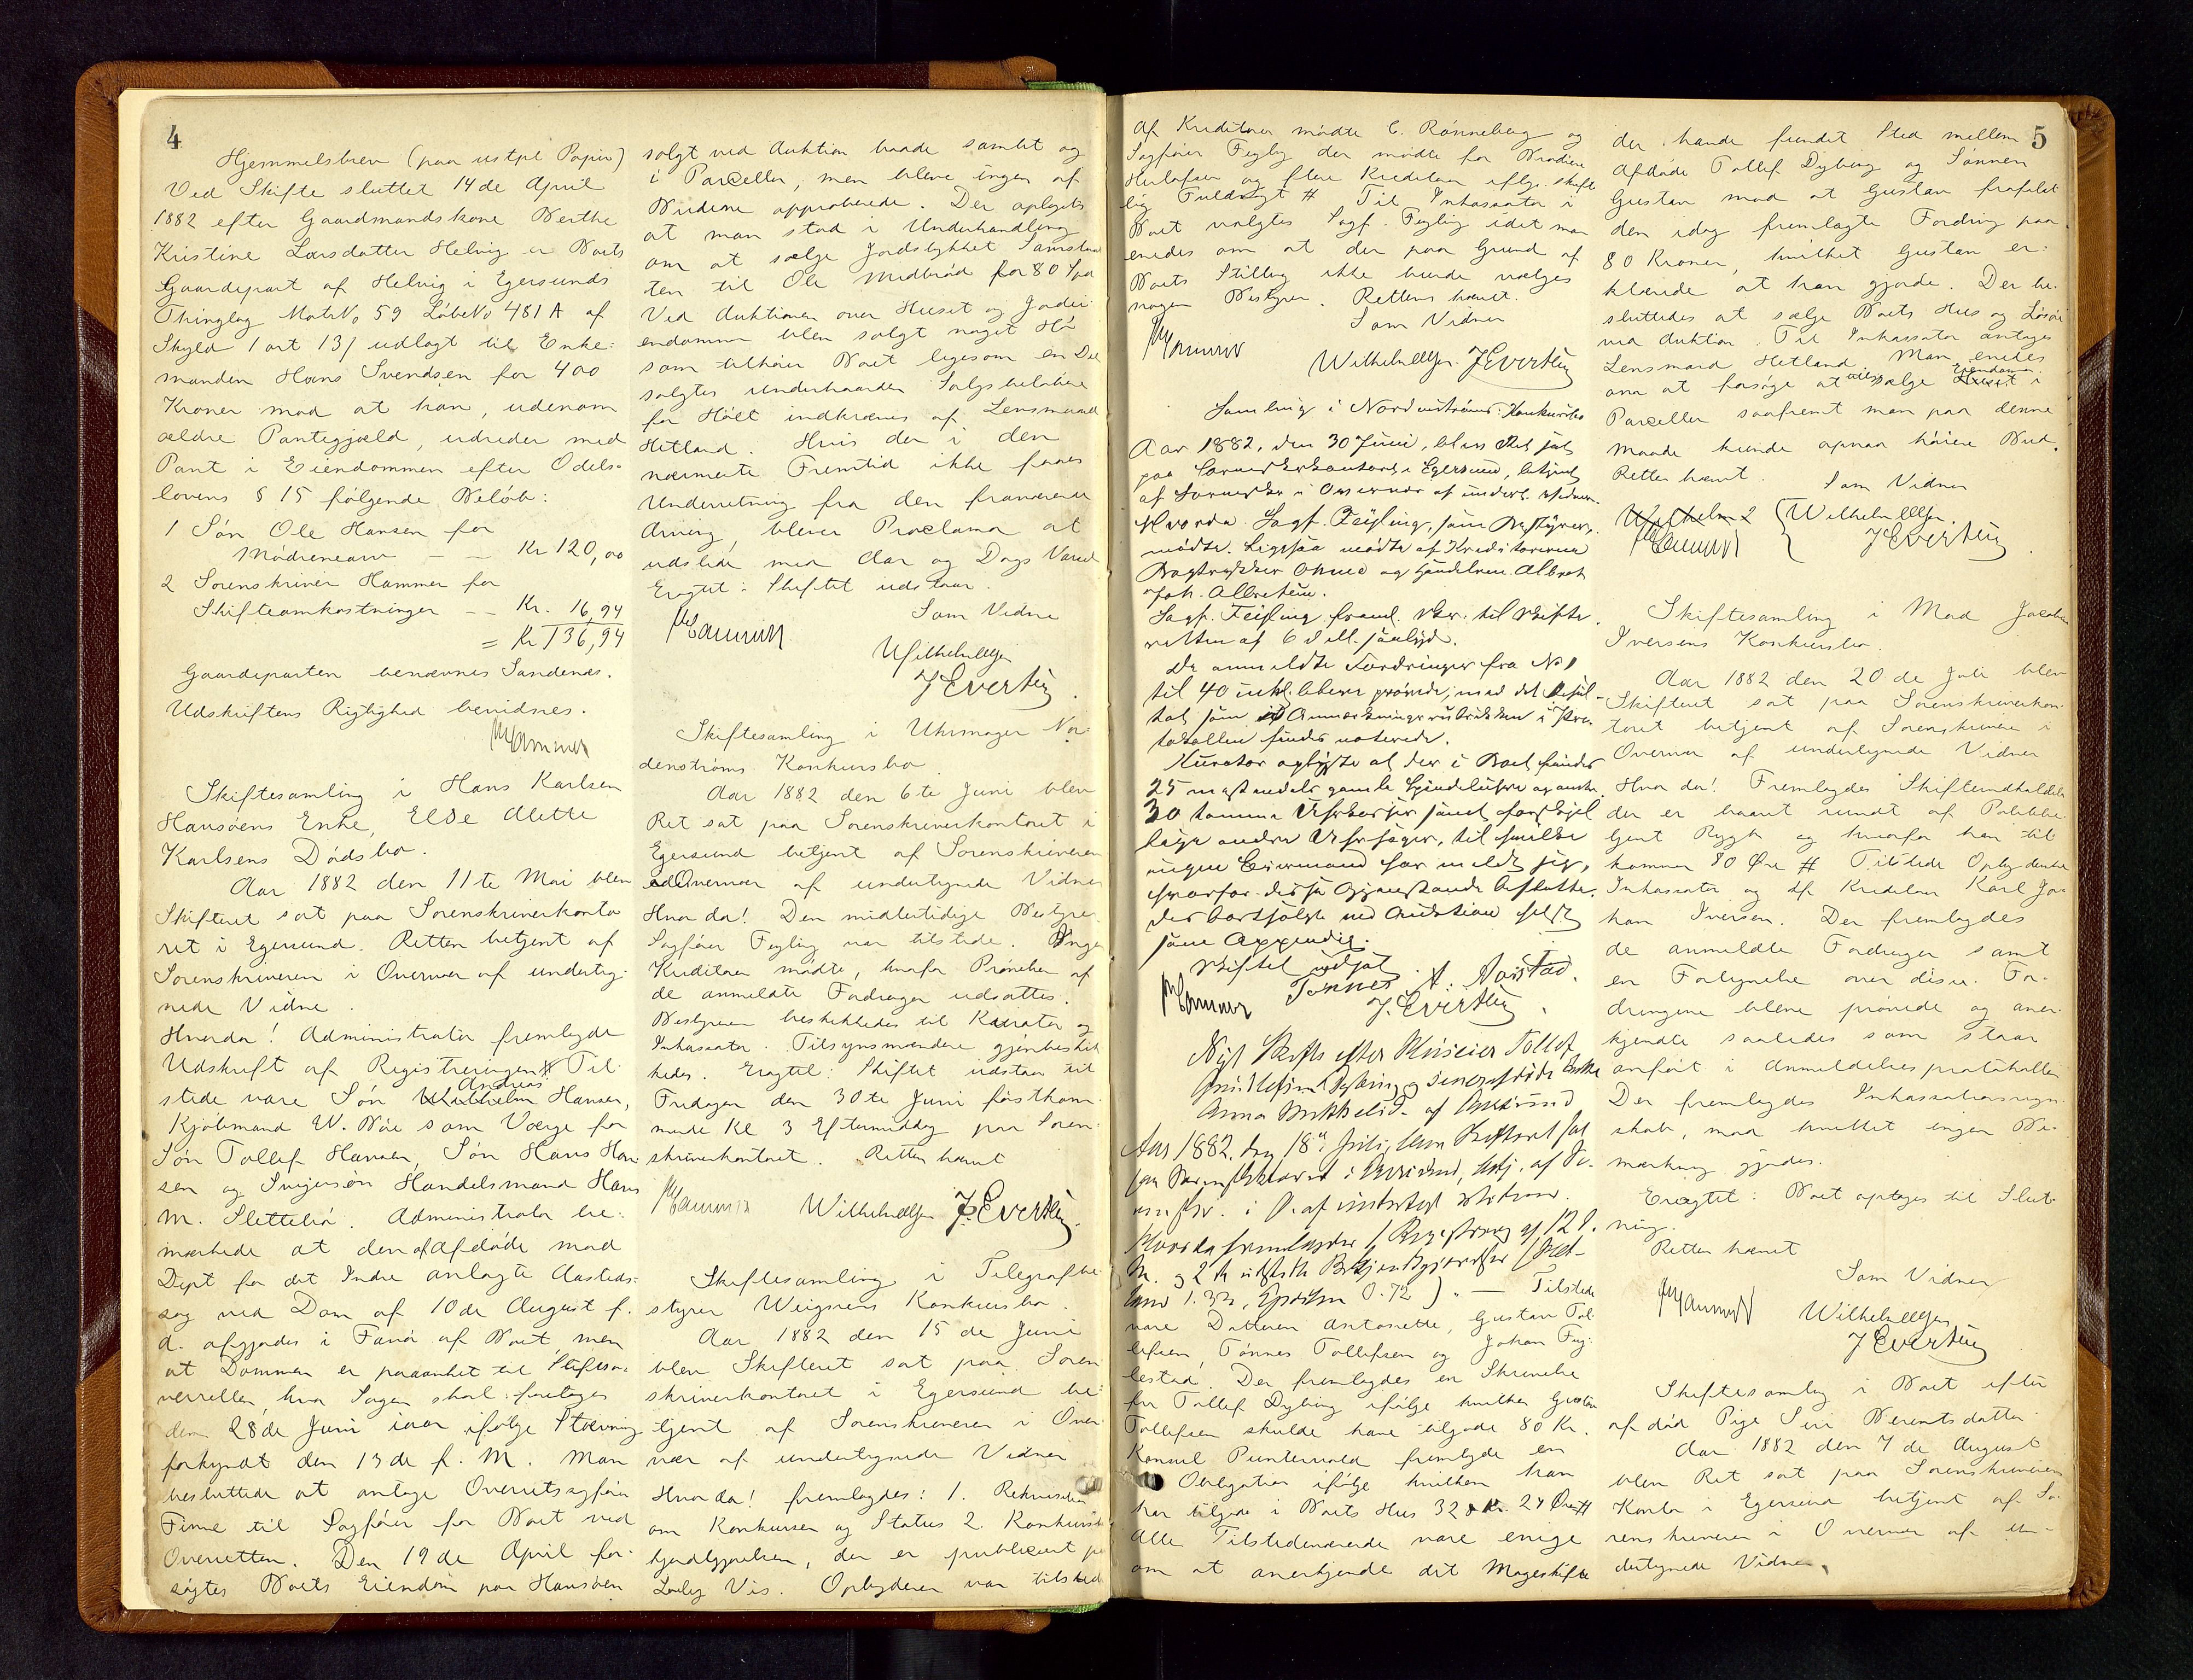 4
Hjemmelsbrev (paa ustpl Papir)
Ved Skifte sluttet 14de April
1882 efter Gaardmandskone Berthe
Kristine Larsdatter Helvig er Boets
Gaardepart af Helvig i Egersunds
Thinglag MatrNo 59 LøbeNo 481 A af
Skyld 1 ort 13 ƒ udlagt til Enke-
manden Hans Svendsen for 400
Kroner mod at han, udenom
ældre Pantegjæld, udreder med
Pant i Eiendommen efter Odels-
lovens § 15 følgende Beløb:
1 Søn Ole Hansen for
Mødrenearv – – Kr 120,00
2 Sorenskriver Hammer for
Skifteomkostninger – – Kr. 16,94
= Kr 136,94
Gaardeparten benævnes Sandenes.
Udskriftens Rigtighed bevidnes.
Hammer
Skiftesamling i Hans Karlsen
Hansøens Enke, Elde Alette
Karlsens Dødsbo.
Aar 1882 den 11te Mai blev
Skifteret sat paa Sorenskriverkonto
ret i Egersund. Retten betjent af
Sorenskriveren i Overvær af underteg-
nede Vidne.
Hvorda! Administrator fremlagde
Udskrift af Registreringen # Til
stede vare Søn Wilhelm Andreas Hansen,
Kjøbmand W. Bøe som Værge for
Søn Tollef Hansen, Søn Hans Han-
sen og Svigersøn Handelsmand Hans
M. Slettebø. Administrator be-
mærkede at den af Afdøde mod
Dept for det Indre anlagte Aasteds-
sag ved Dom af 10de August f.
A. afgjordes i Favør af Boet, men
at Dommen er paaanket til Stiftso-
verretten, hvor Sagen skal foretages
den 28de Juni iaar ifølge Stævning
forkyndt den 13de f. M. Man
besluttede at antage Overretssagfører
Finne til Sagfører for Boet ved
Overretten. Den 19de April for-
søgtes Boets Eiendom paa Hansøen
solgt ved Auktion baade samlet og
i Parceller, men bleve ingen af
Budene approberede. Der oplystes
at man stod i Underhandling
om at sælge Jordstykket
ten til Ole Midbrød for 80 Spd
Ved Auktionen over Huset og Jordei-
endommen blev solgt noget Hø
som tilhører Boet ligesom en Del
solgtes underhaanden Salgsbeløbene
for Høet indkræves af Lensmand
Hetland. Hvis der i den
nærmeste Fremtid ikke faaes
Underretning fra den fraværende
Arving, bliver Proclama at
udstede med Aar og Dags Varsel
Eragtet: Skiftet udstaar.
Hammer Som Vidne
Wilhelm Ellefsen
J Evertsen
Skiftesamling i Uhrmager Nor-
denstrøms Konkursbo
Aar 1882 den 6te Juni blev
Ret sat paa Sorenskriverkontoret i
Egersund betjent af Sorenskriveren
i Overvær af undertegnede Vidner
Hvor da! Den midlertidige Bestyrer
Sagfører Feyling var tilstede. Ingen
Kreditorer mødte, hvorfor Prøvelsen af
de anmeldte Fordringer udsattes.
Bestyreren beskikkedes til Kurator og
Inkassator. Tilsynsmændene gjenbeskik
kedes. Eragtet: Skiftet udstaar til
Fredagen den 30te Juni førstkom-
mende Kl 3 Eftermiddag paa Soren-
skriverkontoret. Retten hævet
Hammer Wilhelm Ellefsen J. Evertsen
Skiftesamling i Telegrafbe-
styrer Weigners Konkursbo.
Aar 1882 den 15de Juni
blev Skifteret sat paa Soren
skriverkontoret i Egersund be-
tjent af Sorenskriveren i Over
vær af undertegnede Vidner
Hvor da! fremlagdes: 1. Rekvisition
om Konkursen og Status 2. Konkurs
kundgjørelsen, der er publiceret paa
Lovlig Vis. Opbyderen var tilstede
5
Af Kreditorer mødte C. Rønneberg og
Sagfører Feyling der mødte for Brødrene
Herlofsen og flere Kreditorer iflge. skift
lig Fuldmagt # Til Inkassator i
Boet valgtes Sagf. Feyling idet man
enedes om at der paa Grund af
Boets Stilling ikke burde vælges
nogen Bestyrer. Retten hævet.
Som Vidner
Hammer
Wilhelm Ellefsen. J Evertsen
Samling i Nordenstrøms Konkursbo
Aar 1882, den 30 Juni, blev Ret sat
paa Sorenskriverkontoret i Egersund, betjent
af Sorenskr. i Overvær af underte. Vidner.
Hvorda Sagf. Feyling, som Bestyrer,
mødte. Ligesaa mødte af Kreditorerne
Bogtrykker Ohme og Handelsm. Albret
Joh. Albretsen.
Sagf. Feyling freml. Skr. til Skifte
retten af 6 d M. saalyd.
De anmeldte Fordringer fra No 1
til 40 inkl. bleve prøvede, med det Resul-
tat som i Anmærkningsrubrikken i Pro-
tokollen findes noterede.
Kurator oplyste at der i Boet findes
25 gamle Spindeluhre og omtr.
30 tomme Uhrkasser samt forskjel
lige andre Uhrsager, til hvilke
ingen Eiermand har meldt sig,
hvorfor disse Gjenstande besluttedes
bortsolgte ved Auktion
som Appendix.
Skiftet udsat.
Hammer Tønnes A. Aarstad.
J. Evertsen
Nyt Skifte efter Huseier Tollef
Gudlefsen Dybing og senere afdøde Enke
Anna Mikkelsd. af Egersund
Aar 1882, den 18de Juli, blev Skifteret sat
paa Sorenskriverkontoret i Egersund, betj. af So-
renskr. i O. af undertegn. Vidner.
Hvorda fremlagdes 1 Registrering af 12 d.
M. og 2
Tilstede
vare Datteren Antonette, Gustav Tol-
lefsen, Tønnes Tollefsen og Johan Fug-
lestad. Der fremlagdes en Skrivelse
fra Tollef Dybing ifølge hvilken Gustav
Tollefsen skulde have tilgode 80 Kr.
Konsul Puntervold fremlagde en
Obligation ifølge hvilken han
har tilgode i Boets Hus 328 Kr. 24 Øre #
Alle Tilstedeværende vare enige
om at anerkjende det Mageskifte
der havde fundet Sted mellem
Afdøde Tollef Dybing og Sønnen
Gustav mod at Gustav frafaldt
den idag fremlagte Fordring paa
80 Kroner, hvilket Gustav er-
klærede at han gjorde. Der be-
sluttedes at sælge Boets Hus og Løsøre
ved Auktion. Til Inkassator antoges
Lensmand Hetland. Man enedes
om at forsøge at sælge Eiendom. i
Parceller saafremt man paa denne
Maade kunde opnaa høiere Bud.
Retten hævet. Som Vidner
Wilhelm Ellefsen.
Hammer J Evertsen
Skiftesamling i Mad Jacob
Iversens Konkursbo.
Aar 1882 den 20de Juli blev
Skifteret sat paa Sorenskriverkon-
toret betjent af Sorenskriveren i
Overvær af undertegnede Vidner
Hvor da! Fremlagdes Skifteindkaldelse
der er baaret rundt af Politibe-
tjent Rygh og hvorfor han til
kommer 80 Øre # Tilstede Opbyderen
Inkassator og Af Kreditorer Karl Jo-
han Iversen. Der fremlagdes
de anmeldte Fordringer samt
en Fortegnelse over disse. For-
dringene bleve prøvede og aner-
kjendte saaledes som staar
anført i Anmeldelsesprotokollen
Der fremlagdes Inkassationsregn-
skab, mod hvilket ingen Be-
mærkning gjordes.
Eragtet: Boet optages til Slut-
ning.
Retten hævet
Som Vidner
Hammer Wilhelm Ellefsen
J Evertsen
Skiftesamling i Boet efter
afdød Pige Siri Berentsdatter
Aar 1882 den 7de August
blev Ret sat paa Sorenskriverens
Kontor i Egersund betjent af So-
renskriveren i Overvær af un-
dertegnede Vidner.